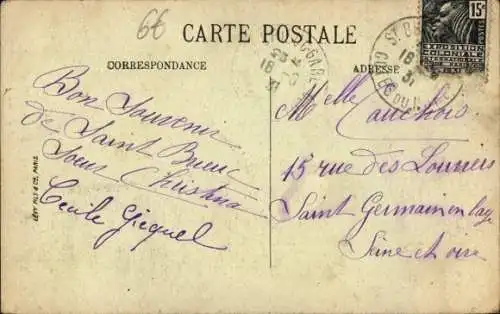 66
CARTE POSTALE
CORRESPONDANCE
ADRESSE
15c
EXPOSITION
COLONIALE
18
31
18
31
Bon Souvenir
de Saint Brieuc
Soeur Christina
Cécile Gicquel
Melle Cauchois
15 rue des Louviers
Saint Germain en laye
Seine et oise
LÉVY FILS & Cie, PARIS